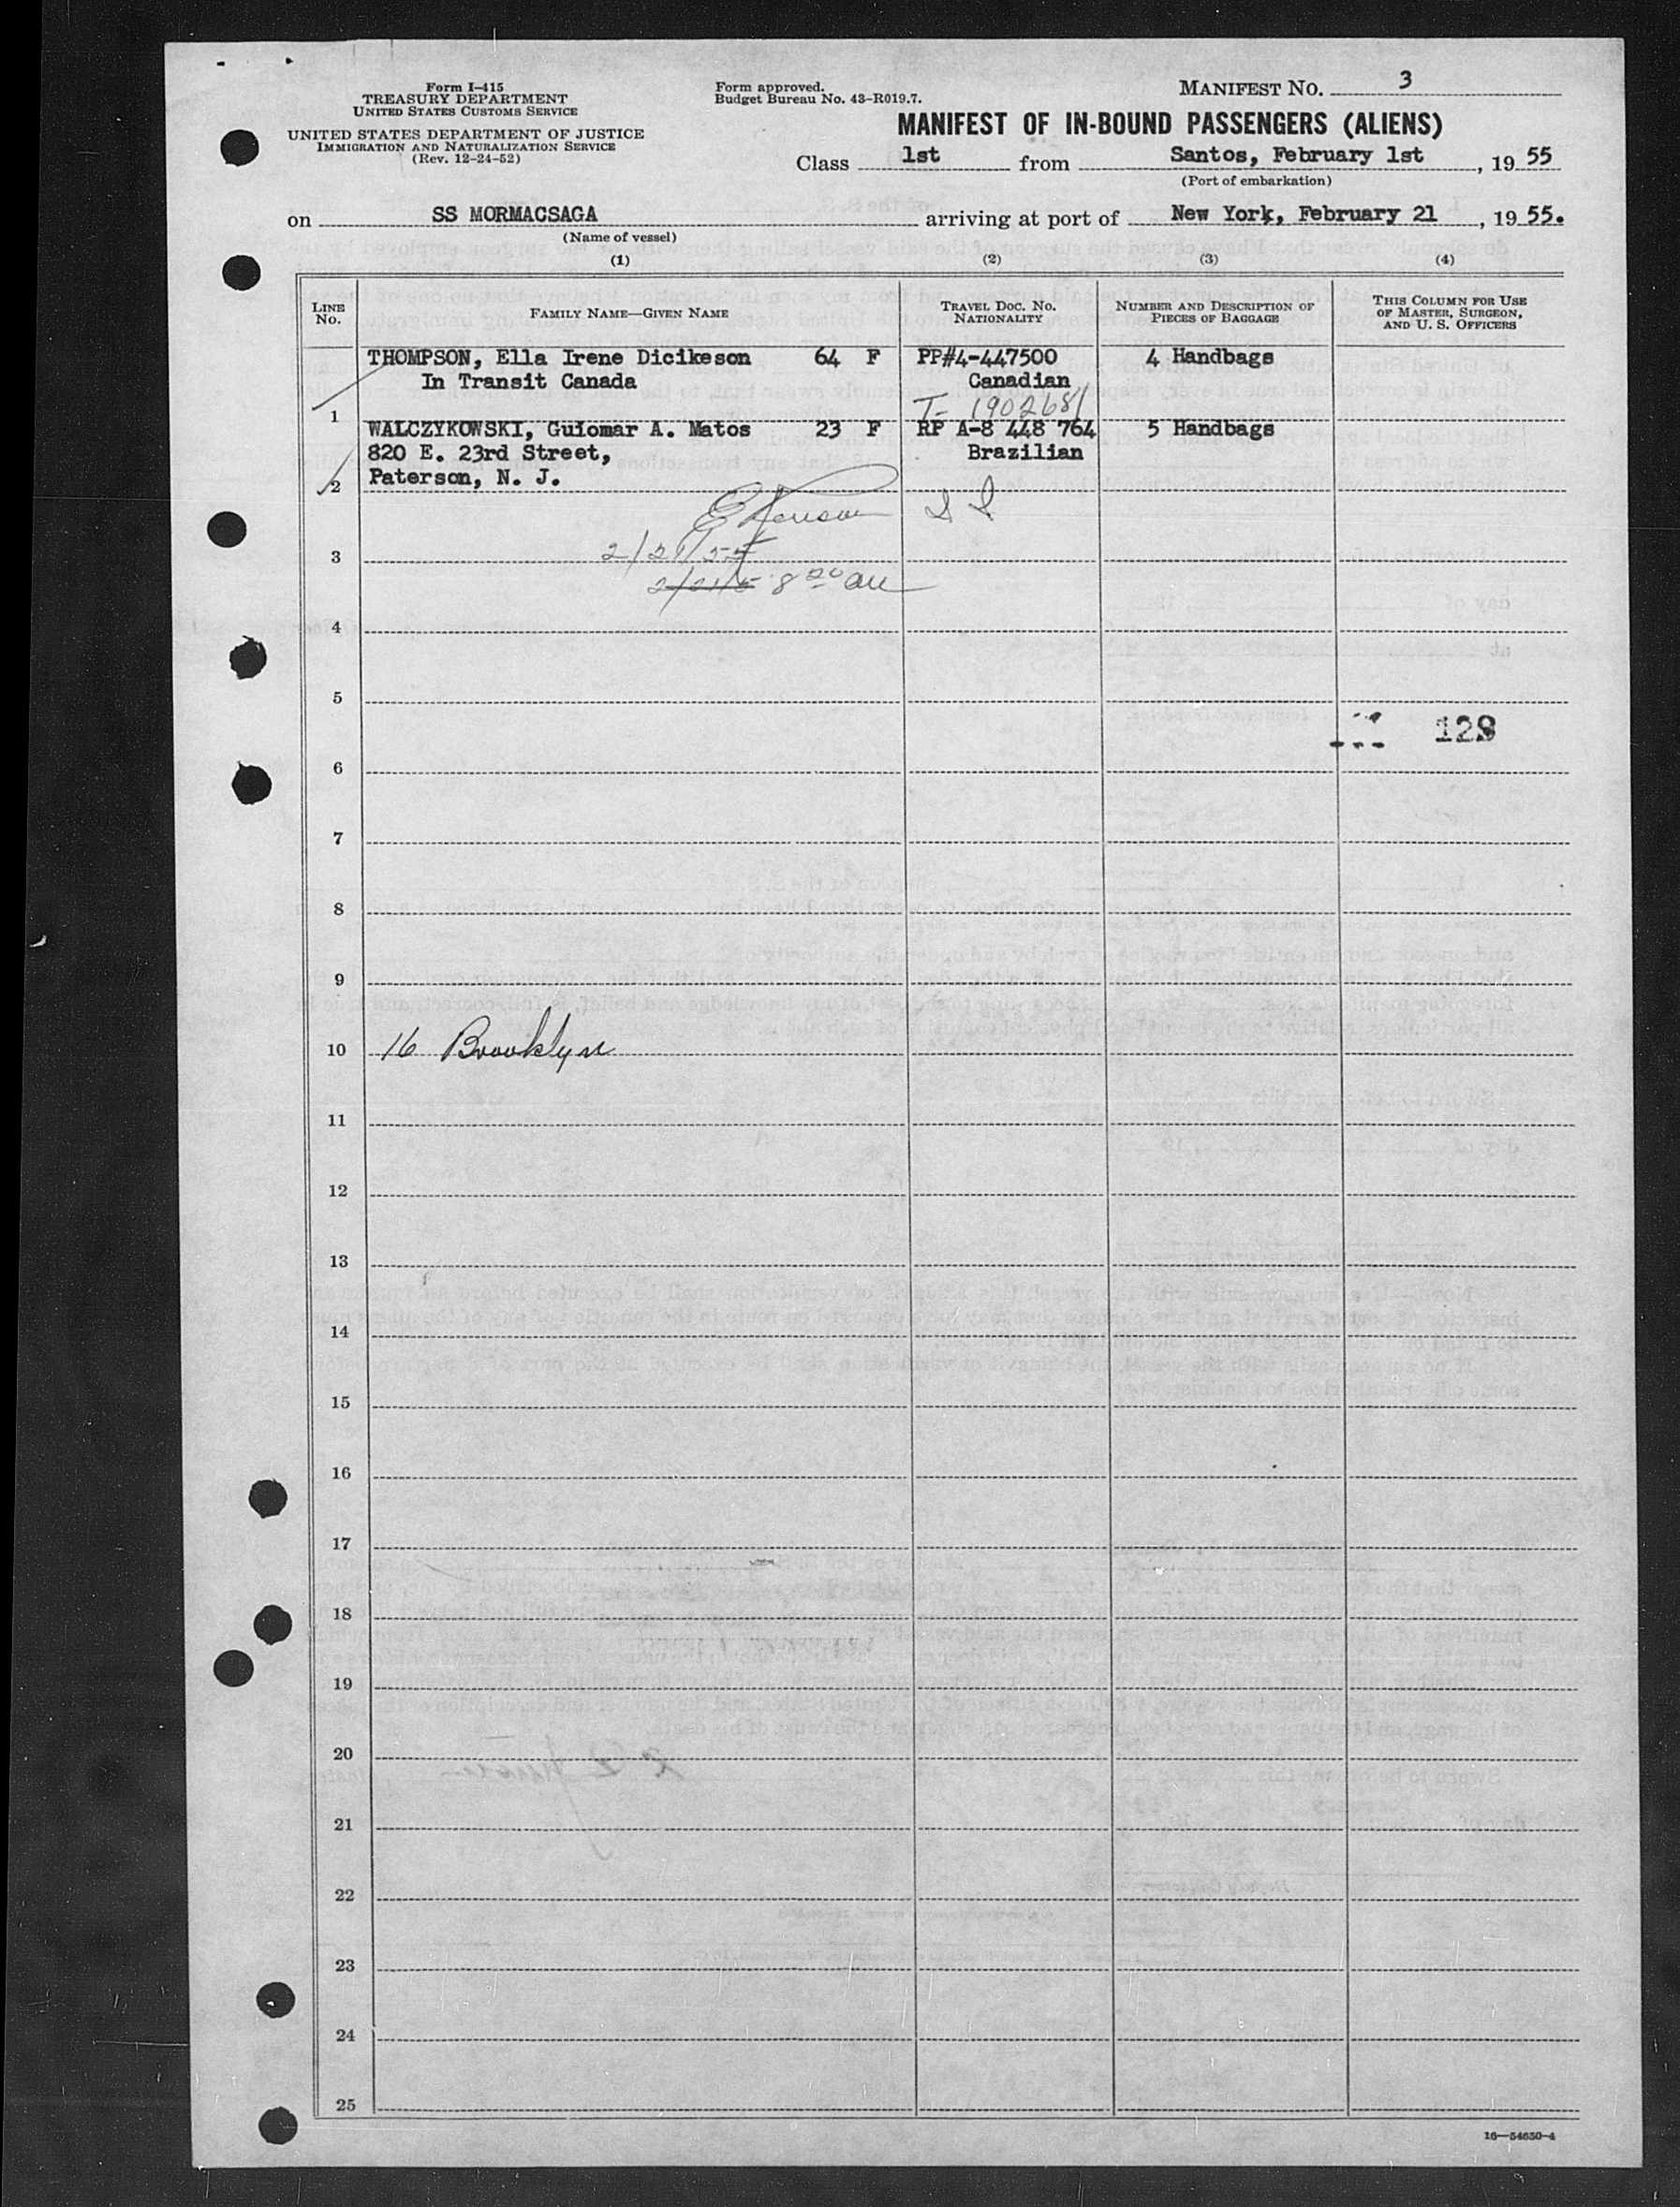 Form I-415
TREASURY DEPARTMENT
UNITED STATES CUSTOMS SERVICE
UNITED STATES DEPARTMENT OF JUSTICE
IMMIGRATION AND NATURALIZATION SERVICE
(Rev. 12-24-52)
Form approved.
Budget Bureau No. 43-R019.7.
MANIFEST NO. 3
MANIFEST OF IN-BOUND PASSENGERS (ALIENS)
Class 1st from Santos, February 1st, 19 55
(Port of embarkation)
on SS MORMACSAGA arriving at port of New York, February 21, 19 55.
(Name of vessel)
(1) (2) (3) (4)
LINE No. FAMILY NAME—GIVEN NAME TRAVEL DOC. NO. NATIONALITY NUMBER AND DESCRIPTION OF PIECES OF BAGGAGE THIS COLUMN FOR USE OF MASTER, SURGEON, AND U. S. OFFICERS
THOMPSON, Ella Irene Dicikeson 64 F PP#4-447500 4 Handbags
In Transit Canada Canadian
1 T- 1902681
WALCZYKOWSKI, Guiomar A. Matos 23 F RP A-8 448 764 5 Handbags
820 E. 23rd Street, Brazilian
2 Paterson, N. J.
2/21/55
3
8 20 am
4
5
129
6
7
8
9
10 16 Brooklyn
11
12
13
14
15
16
17
18
19
20
21
22
23
24
25
16—54650-4